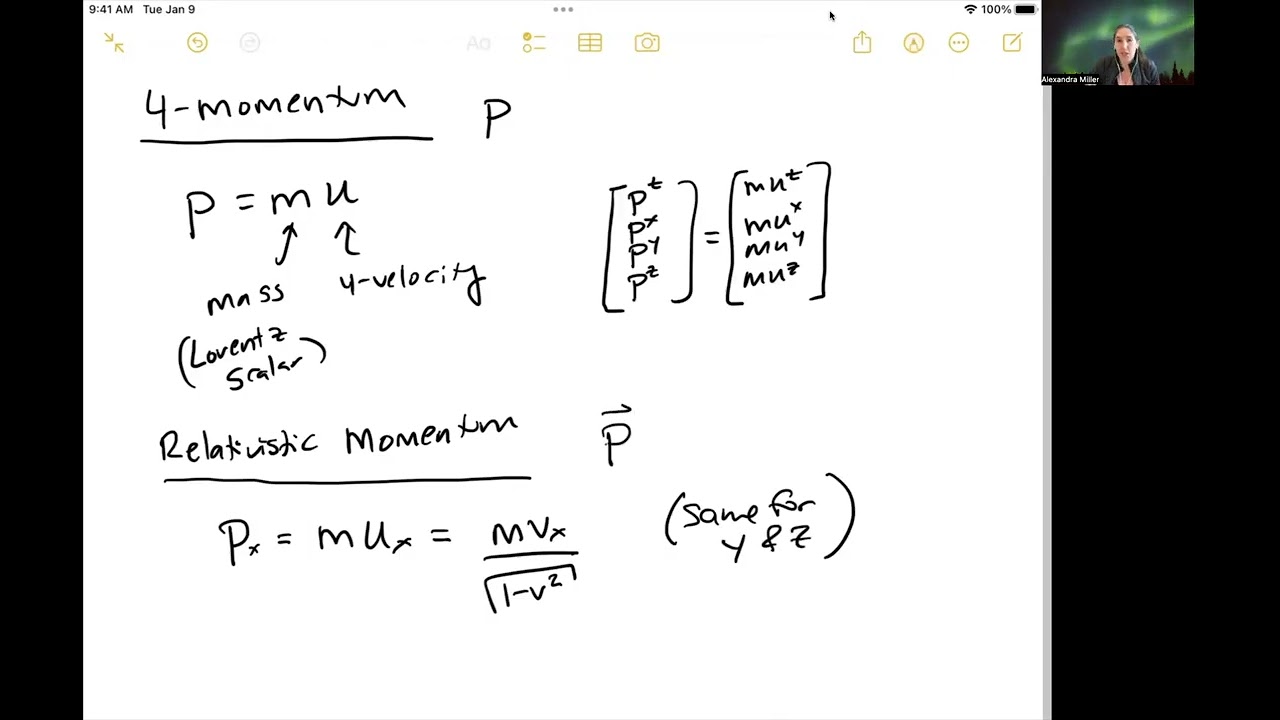 9:41 AM Tue Jan 9
100%
Aa
Alexandra Miller
4-momentum P
P = m u
mass
4-velocity
(Lorentz
scalar)
[P^t P^x P^y P^z] = [mu^t mu^x mu^y mu^z]
Relativistic Momentum \vec{P}
P_x = m u_x = \frac{m v_x}{\sqrt{1-v^2}}
(same for
y & z)